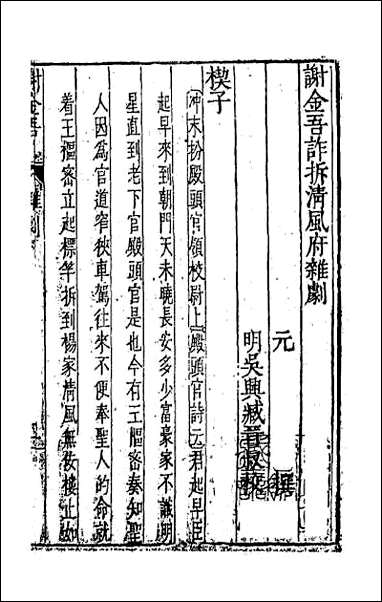 謝金吾詐拆清風府雜劇
元 撰
明吳興臧晉叔校
楔子
沖末扮殿頭官領校尉上殿頭官詩云君起早臣
起早來到朝門天未曉長安多少富豪家不識明
星直到老下官殿頭官是也今有王樞密奏知聖
人因為官道窄狹車駕往來不便奉聖人的命就
着王樞密立起標竿拆到楊家清風無佞樓止如
謝金吾 雜劇